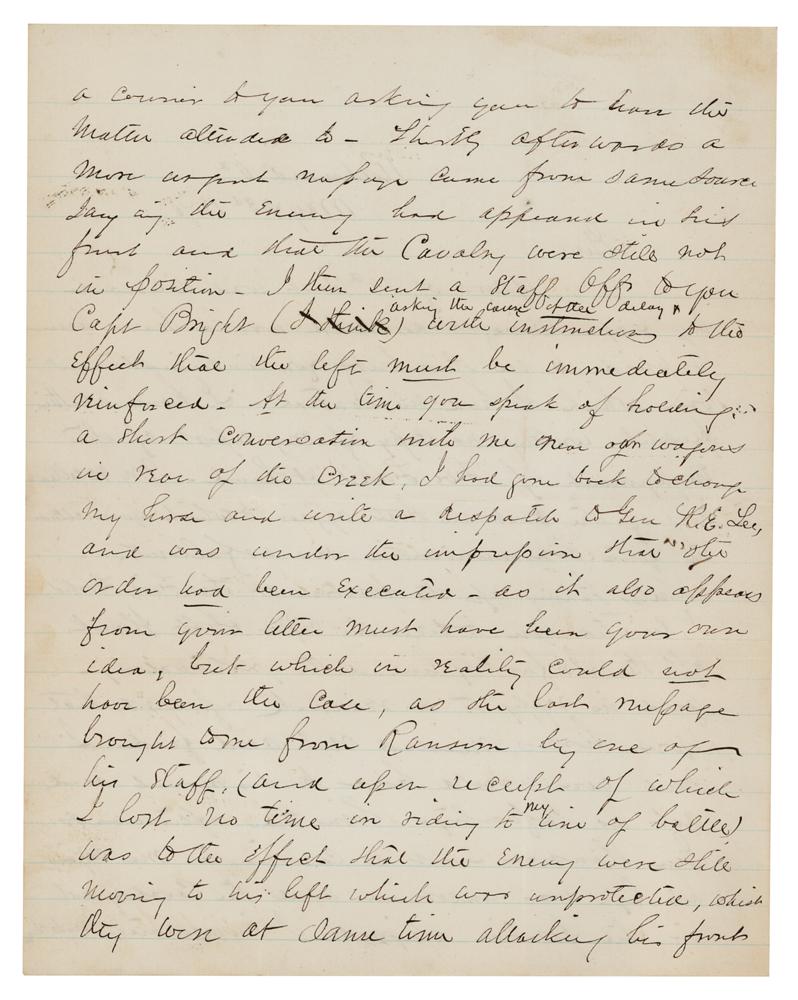 a courier to you asking you to have the
matter attended to - Shortly afterwards a
more urgent message came from same source
saying the Enemy had appeared in his
front and that the Cavalry were still not
in position - I then sent a Staff Offr to you
asking the cause of the delay &
Capt Bright (I think) with instructions to the
Effect that the left must be immediately
reinforced - At the time you speak of holding
a short conversation with me near wagons
in rear of the Creek, I had gone back to change
my horse and write a despatch to Gen R.E. Lee,
and was under the impression that the
order had been Executed - as it also appears
from your letter must have been your own
idea, but which in reality could not
have been the Case, as the last message
brought to me from Ransom by one of
his Staff, (and upon receipt of which
I lost no time in riding to my line of battle)
was to the effect that the Enemy were still
moving to his left which was unprotected, whilst
they were at same time attacking his front